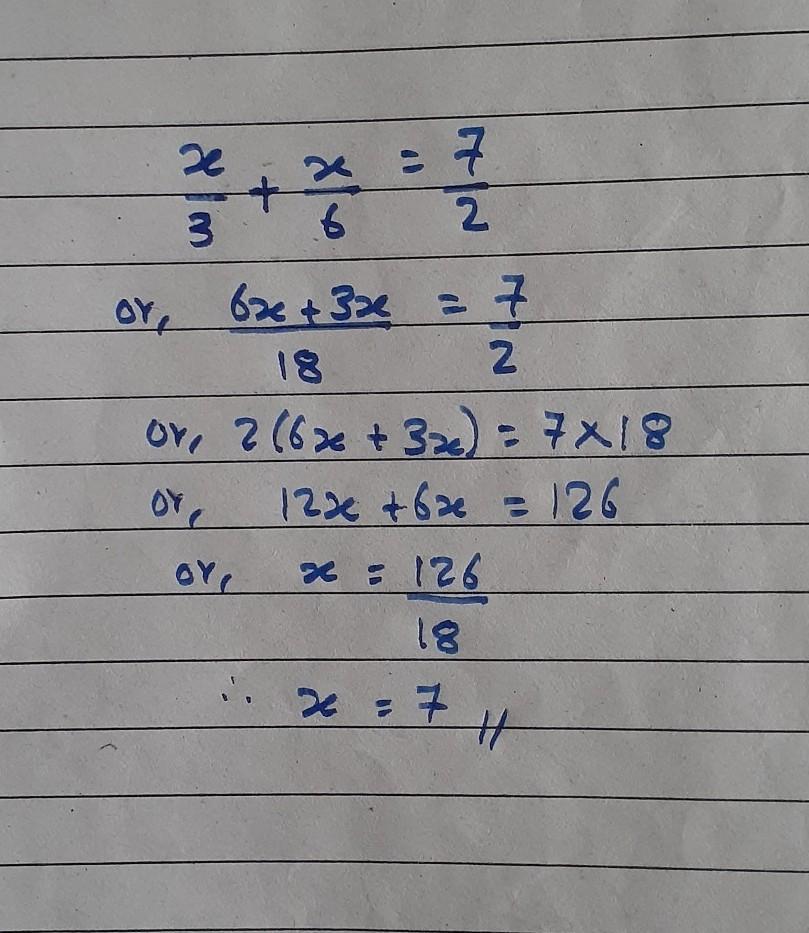 x/3 + x/6 = 7/2
or, (6x + 3x)/18 = 7/2
or, 2(6x + 3x) = 7×18
or, 12x + 6x = 126
or, x = 126/18
∴ x = 7 //